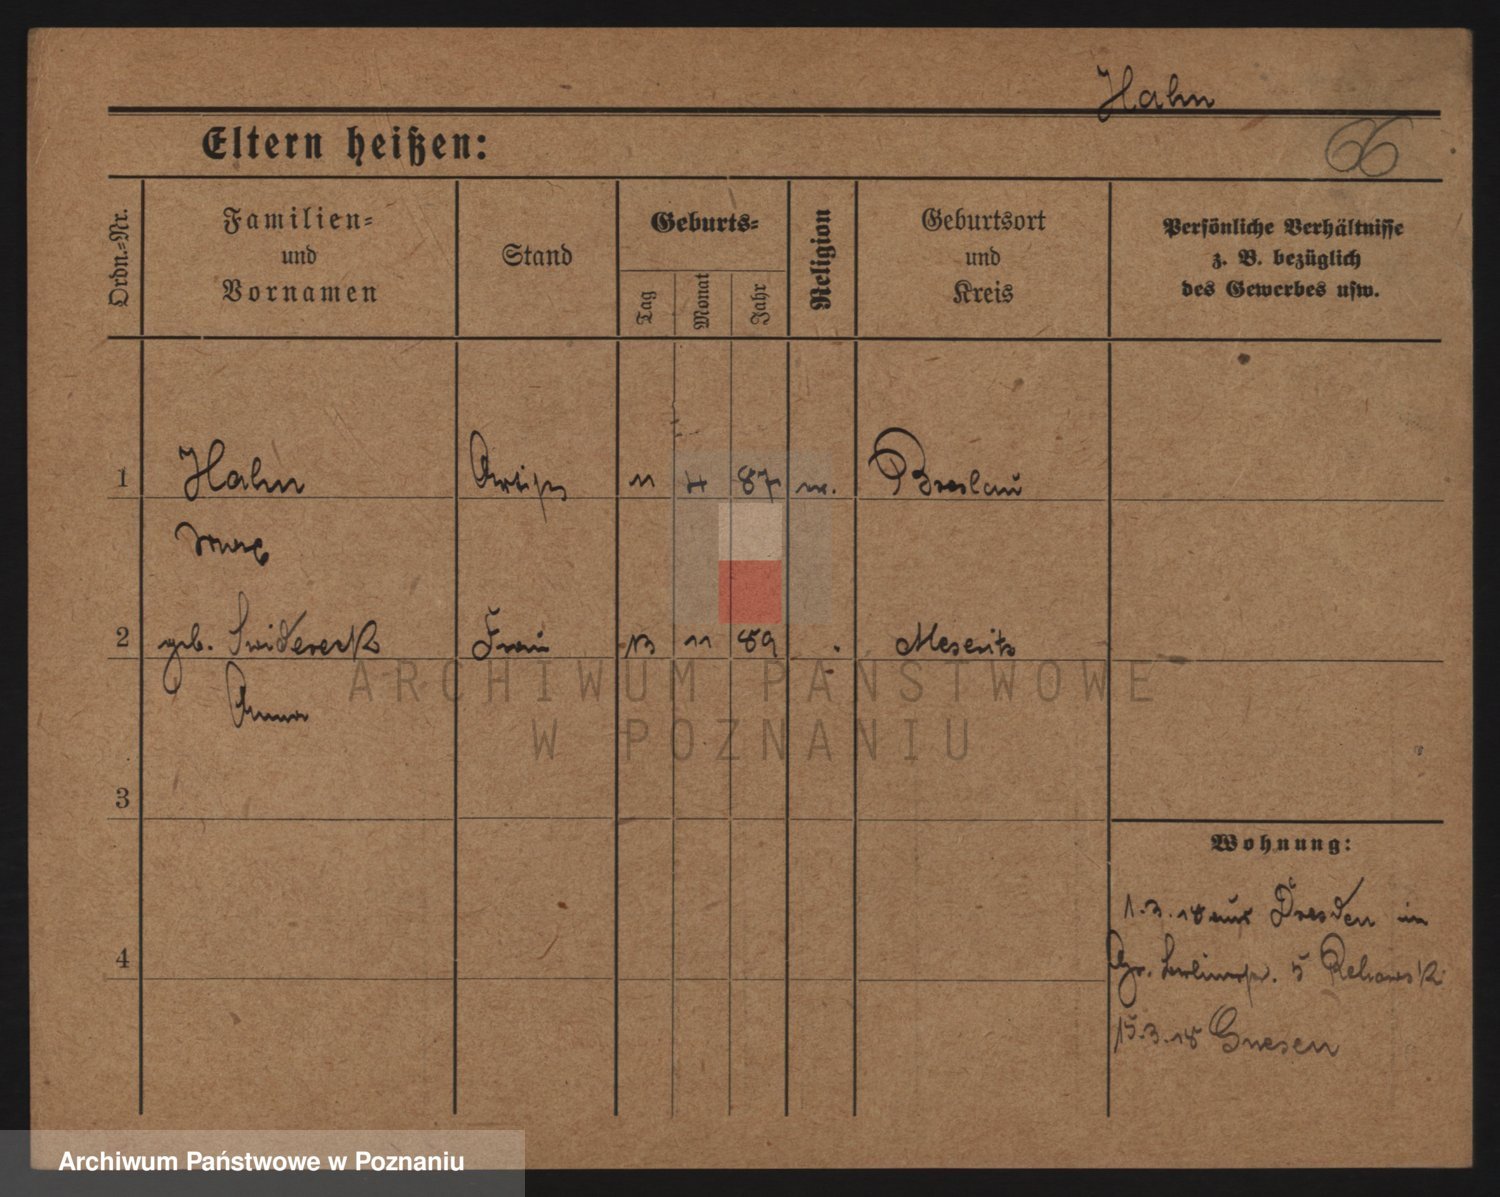 Hahn
66
Eltern heißen:
Ordn.-Nr.
Familien-
und
Vornamen
Stand
Geburts-
Tag
Monat
Jahr
Religion
Geburtsort
und
Kreis
Persönliche Verhältnisse
z. B. bezüglich
des Gewerbes usw.
1 Hahn Artist 11 4 87 Breslau
Max
2 geb. Swidereck Frau 13 11 89 Meseritz
Anna
3
4
Wohnung:
1.3.18 aus Dresden in
Gr. Berlinerstr. 5
15.3.18 Gnesen
ARCHIWUM PAŃSTWOWE
W POZNANIU
Archiwum Państwowe w Poznaniu